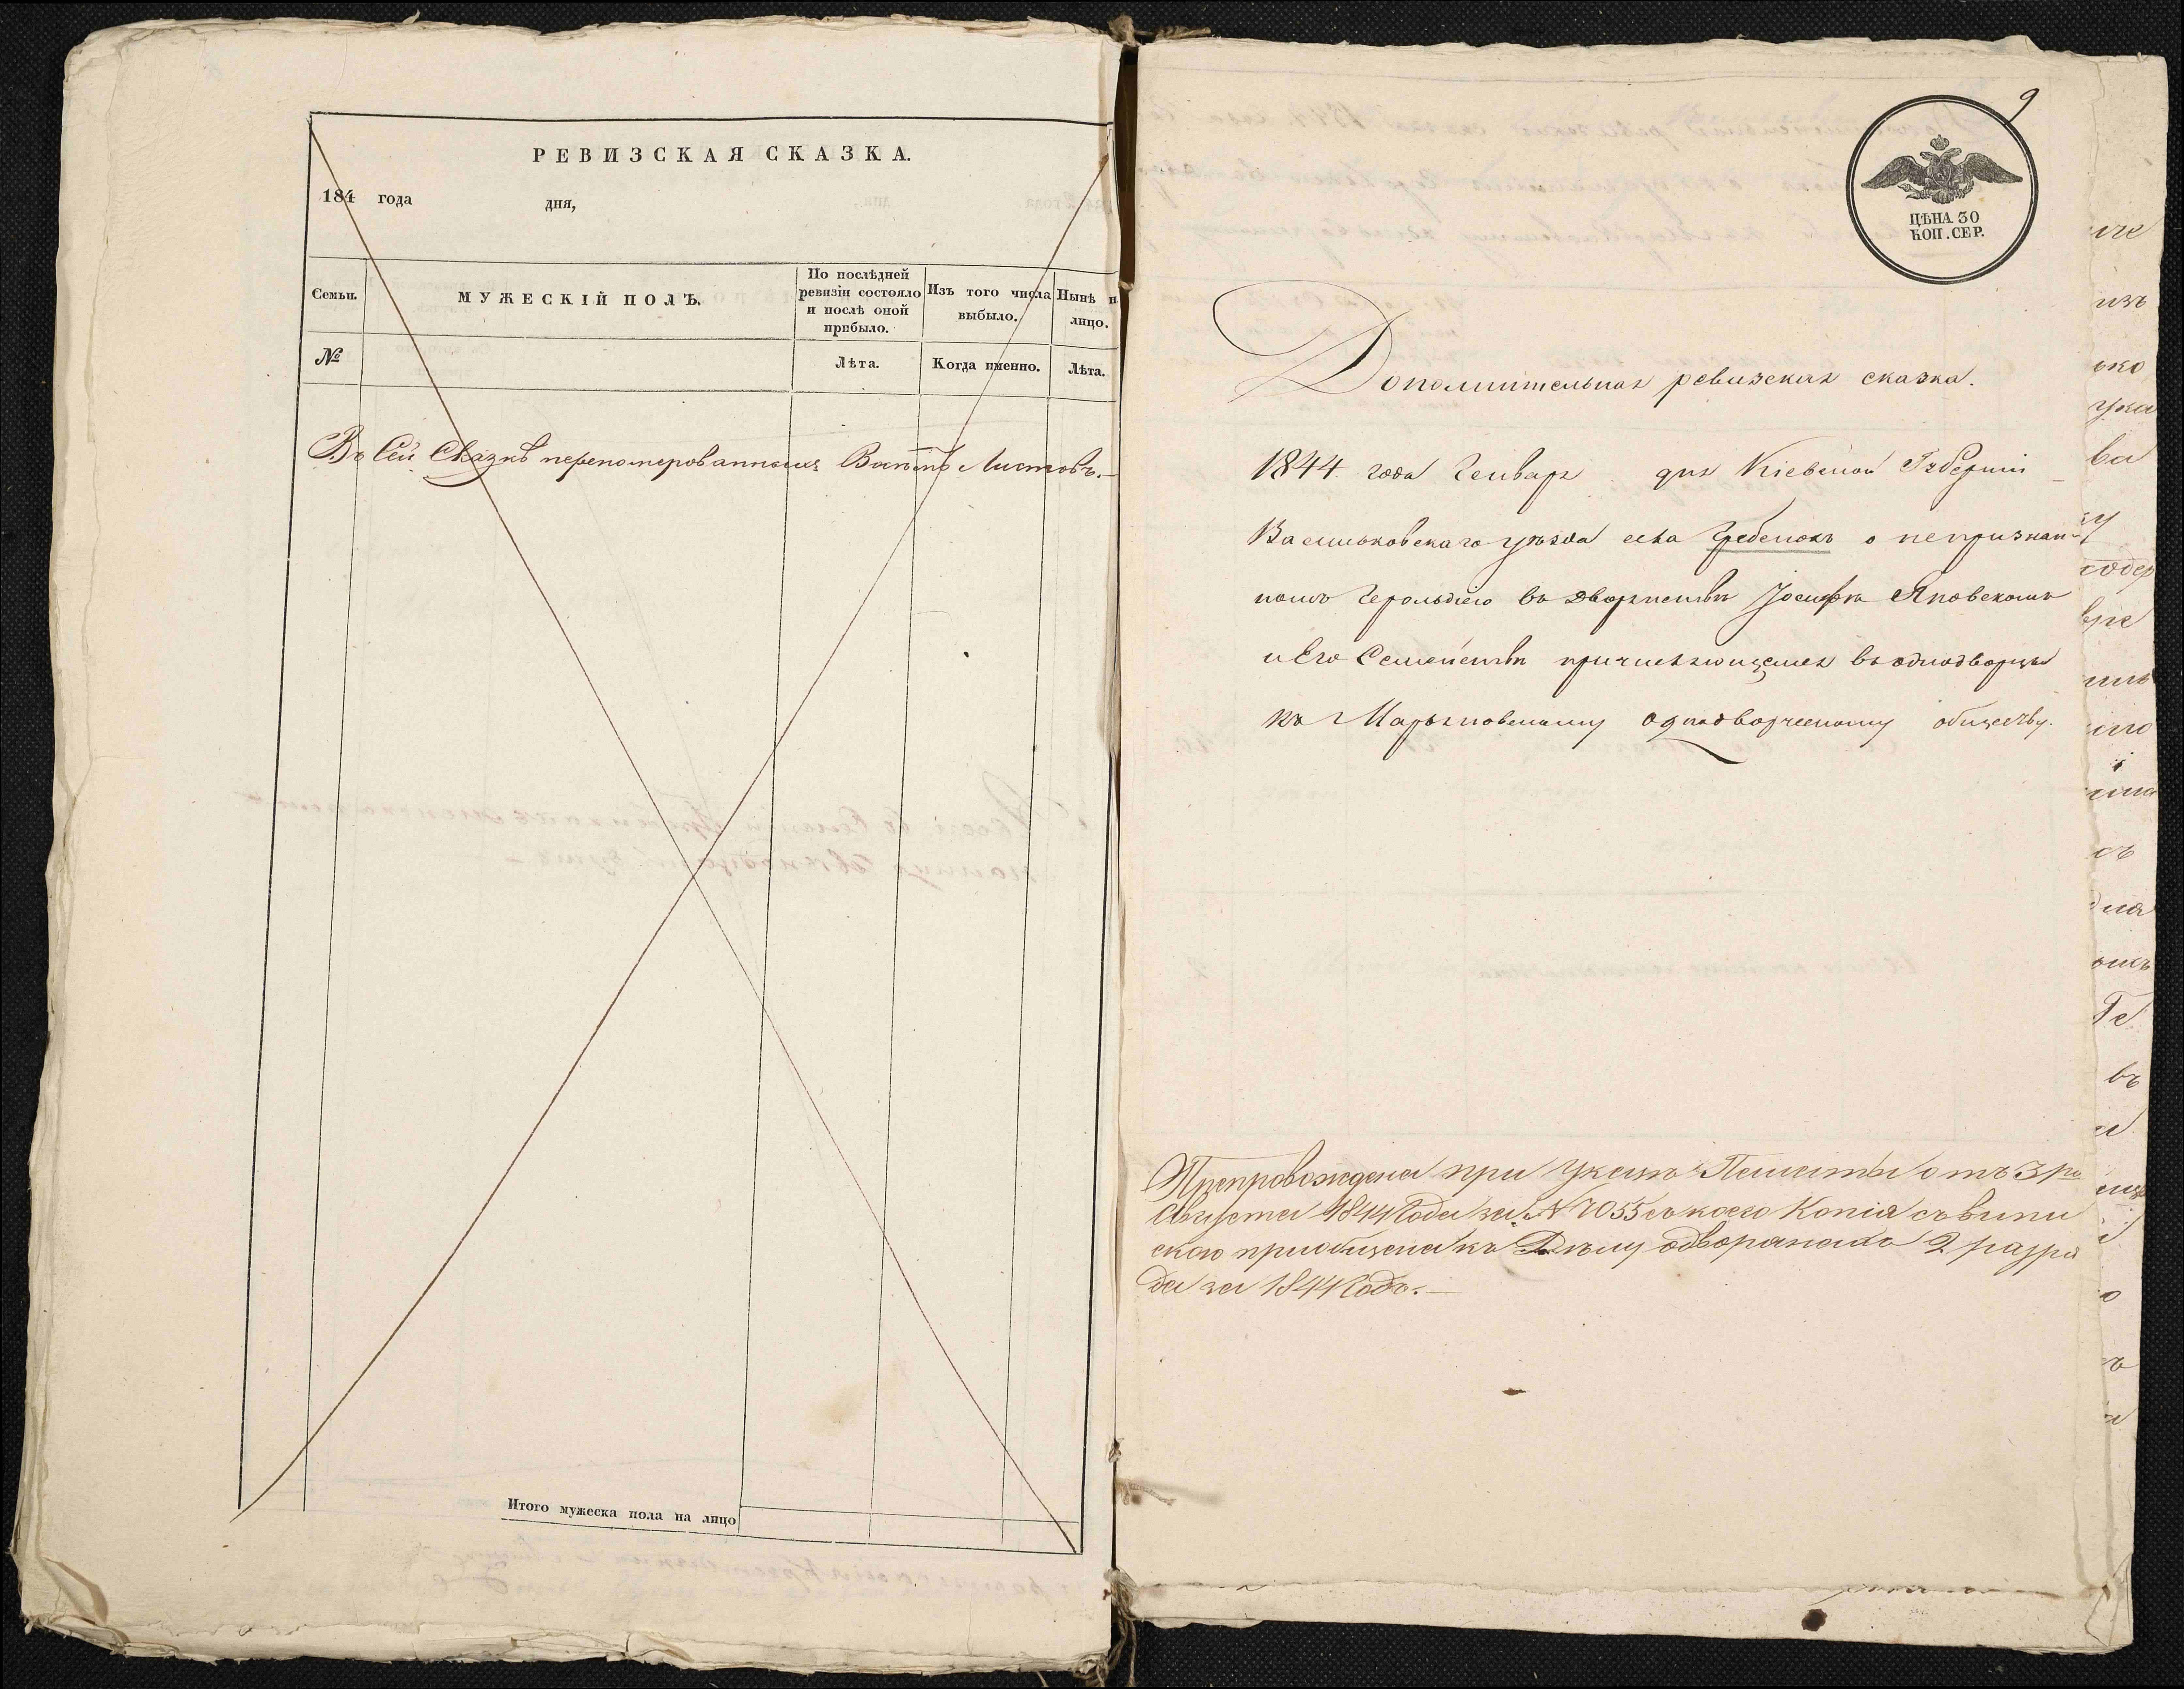 РЕВИЗСКАЯ СКАЗКА.
184 года дня,
Семьи.
МУЖЕСКІЙ ПОЛЪ.
По послѣдней ревизіи состояло и послѣ оной прибыло.
Изъ того числа выбыло.
Нынѣ н
лицо.
№
Лѣта.
Когда именно.
Лѣта.
Въ Сей Сказкѣ перенумерованныхъ Листовъ.
Итого мужеска пола на лицо
9
ЦѢНА 30
КОП. СЕР.
Дополнительная ревизская сказка.
1844 года Генваря дня Кіевской Губерніи
Васильковскаго уѣзда села Гребенокъ о непризнан-
номъ Герольдіею въ дворянствѣ Іосифѣ Яновскомъ
и Его Семействѣ причисляющемся въ однодворцы
къ Марьяновскому однодворческому обществу.
Препровождена при Указѣ Палаты отъ 3го
Августа 1844 Года за № 7055 съ коего Копія съ выпи
скою пріобщена къ Дѣлу о дворянахъ 2 разря
да за 1844 Годъ.